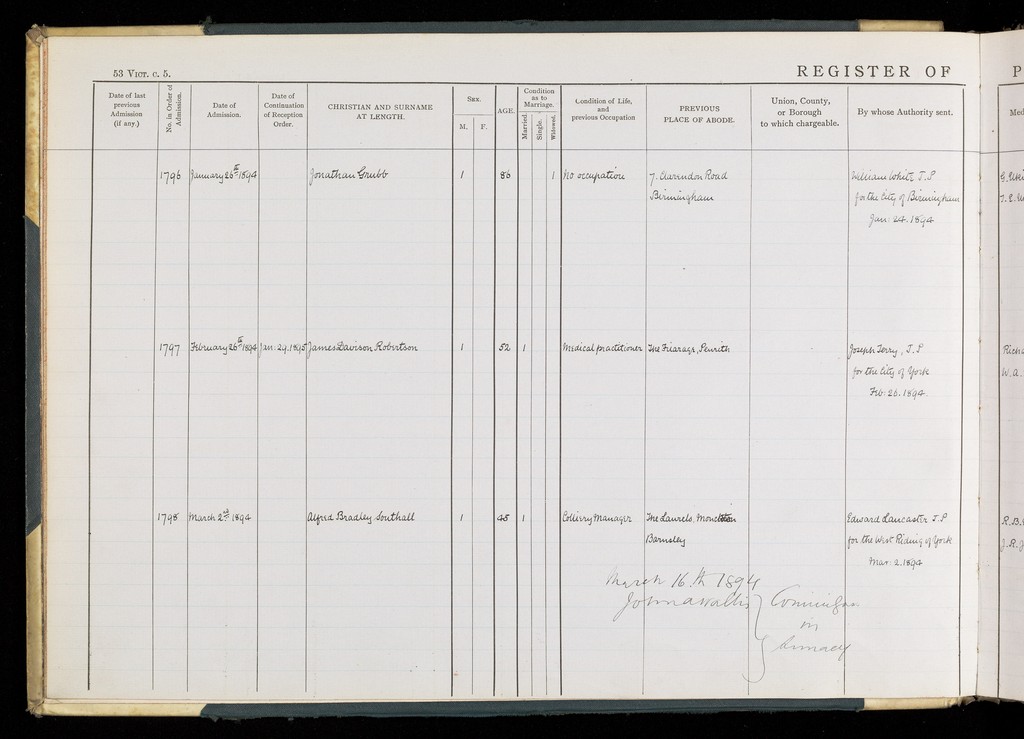 53 VICT. c. 5.
REGISTER OF
P
Date of last previous Admission (if any.)
No. in Order of Admission.
Date of Admission.
Date of Continuation of Reception Order.
CHRISTIAN AND SURNAME AT LENGTH.
SEX.
M. F.
AGE.
Condition as to Marriage.
Married. Single. Widowed.
Condition of Life, and previous Occupation
PREVIOUS PLACE OF ABODE.
Union, County, or Borough to which chargeable.
By whose Authority sent.
Med
1796 January 26th 1894 Jonathan Grubb 1 86 1 No occupation 7. Clarendon Road William White J.P
Birmingham for the City of Birmingham
Jan: 24. 1894
1797 February 26th 1894 Jan: 29. 1895 James Davison Robertson 1 52 1 Medical practitioner The Friarage, Penrith Joseph Terry, J.P
for the City of York
Feb: 26. 1894.
Rich
W. A.
1798 March 2nd 1894 Alfred Bradley Southall 1 45 1 Colliery Manager The Laurels, Edward Lancaster J.P
Barnsley for the West Riding of York
Mar: 2. 1894
R. B.
J. R. J
March 16th 1894
in